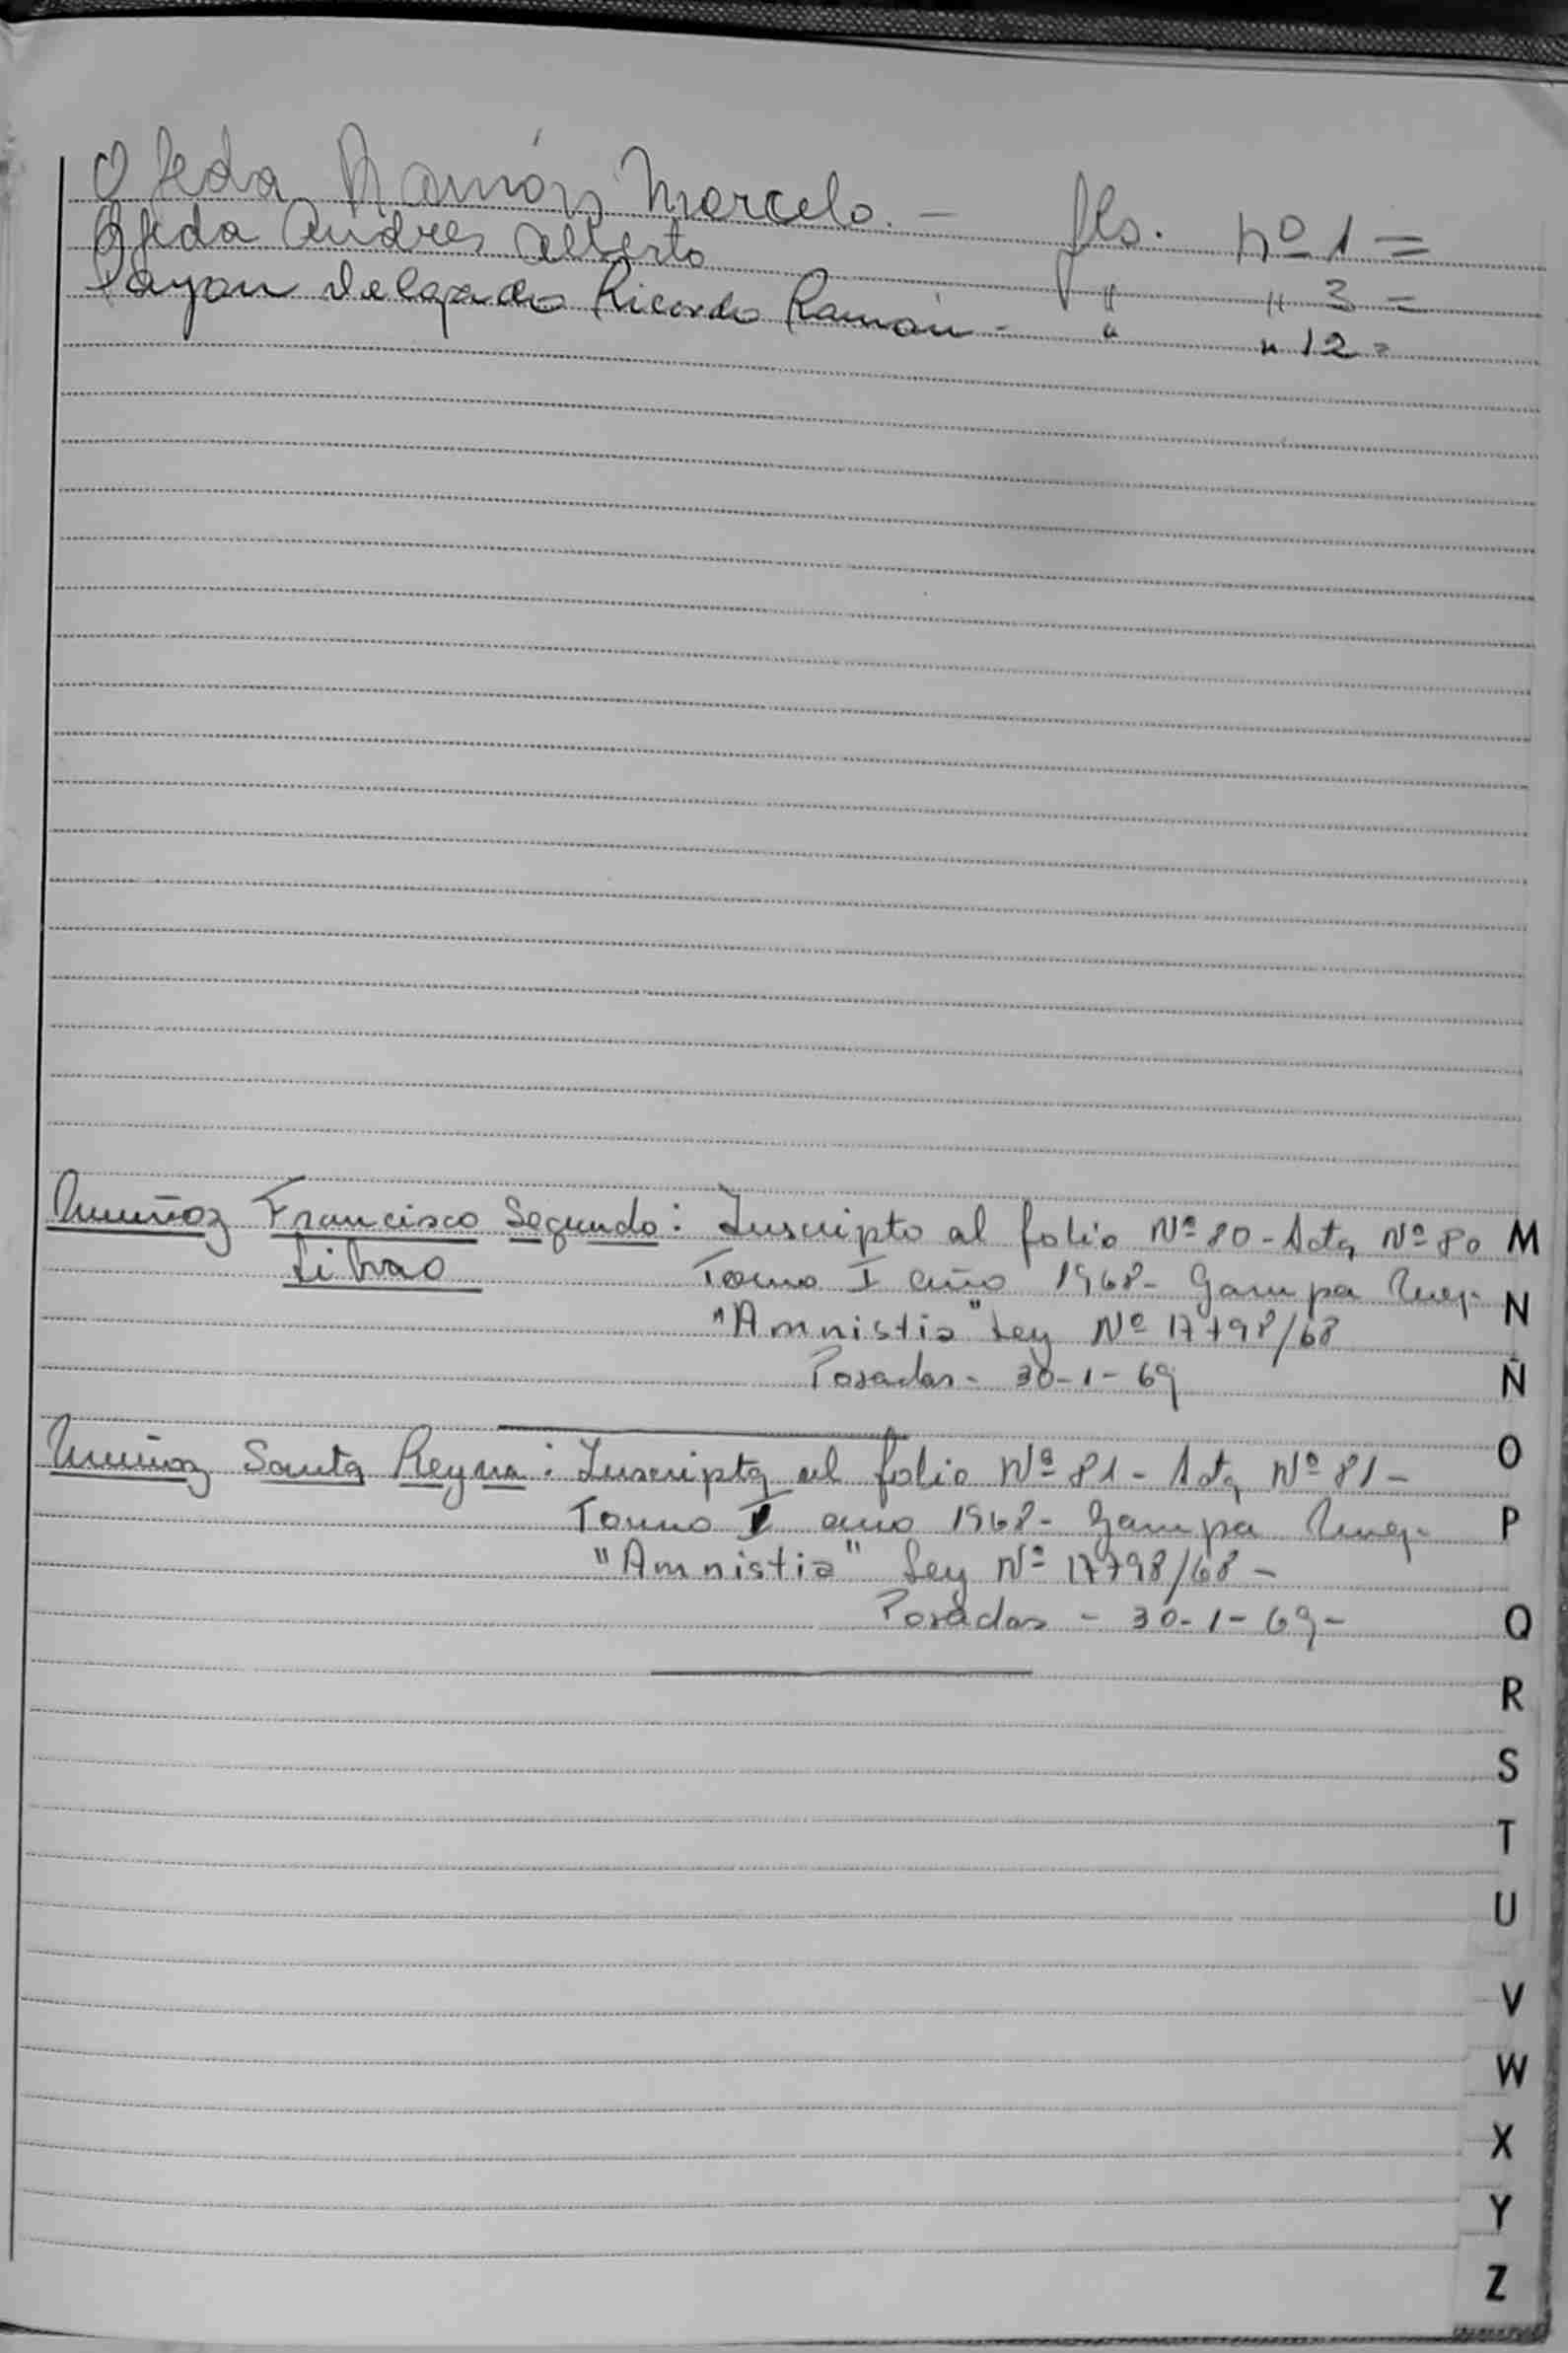 Ojeda Ramón Marcelo. — fls. nº 1 =
Ojeda Andres Alberto " " 3 =
Payon Delgado Ricardo Ramón - " " 12 =
Muñoz Francisco Segundo: Inscripto al folio Nº 80 - Acta Nº 80
Tomo I año 1968 - Garupa Mnes.
"Amnistia" Ley Nº 17798/68
Posadas - 30-1-69
Muñoz Santa Reyna: Inscripta al folio Nº 81 - Acta Nº 81 -
Tomo I año 1968 - Garupa Mnes.
"Amnistia" Ley Nº 17798/68 -
Posadas - 30-1-69 -
M
N
Ñ
O
P
Q
R
S
T
U
V
W
X
Y
Z